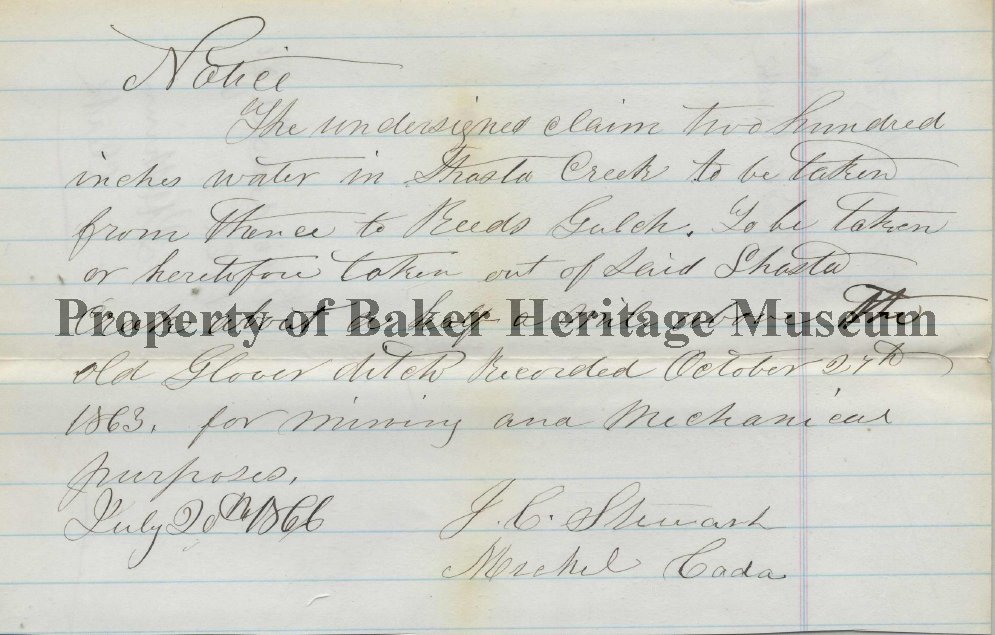 Notice
The undersigned claim two hundred
inches water in Shasta Creek to be taken
from thence to Reeds Gulch. To be taken
or heretofore taken out of said Shasta
Creek about a half a mile above The
Property of Baker Heritage Museum
old Glover ditch Recorded October 27th
1863. for mining and Mechanical
purposes.
July 20th 1866
J. C. Stewart
Michel Cada